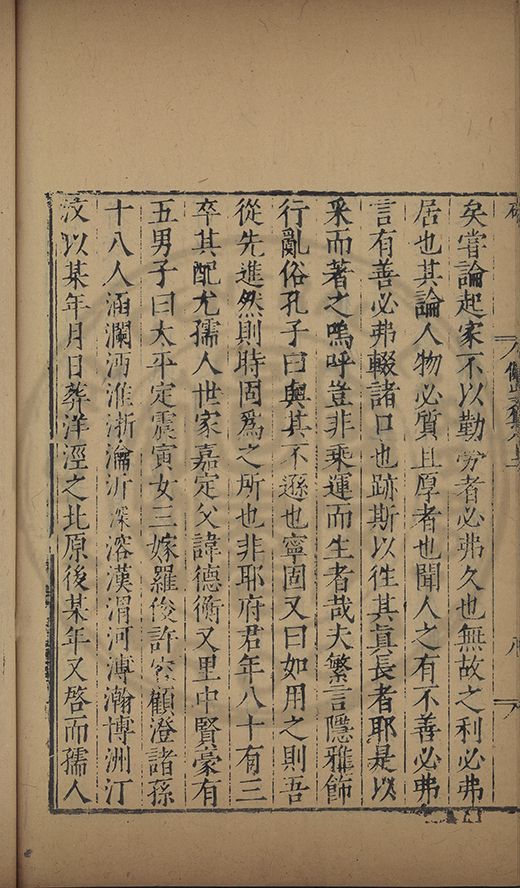 矣嘗論起家不以勤勞者必弗久也無故之利必弗
居也其論人物必質且厚者也聞人之有不善必弗
言有善必弗輟諸口也跡斯以徃其眞長者耶是以
采而著之嗚呼豈非乗運而生者哉夫繁言隱雅飾
行亂俗孔子曰與其不遜也寧固又曰如用之則吾
從先進然則時固爲之所也非耶府君年八十有三
卒其配尤孺人世家嘉定父諱德衡又里中賢豪有
五男子曰太平定震寅女三嫁羅俊許容顧澄諸孫
十八人涵瀾沔淮浙瀹沂深溶漢渭河溥瀚博洲汀
汶以某年月日葬洋涇之北原後某年又啓而孺人